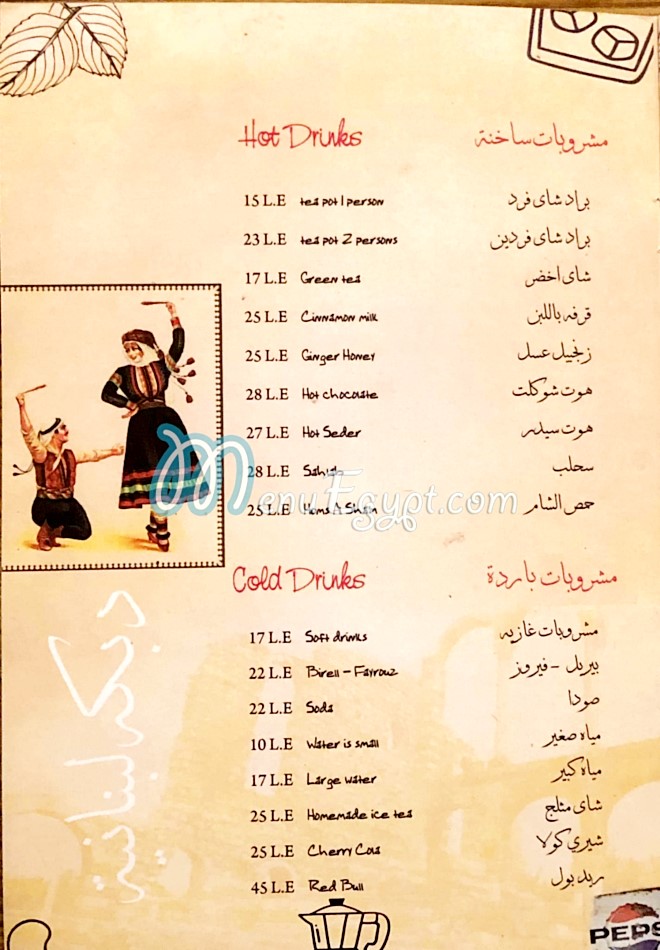 Hot Drinks مشروبات ساخنة
15 L.E tea pot 1 person براد شاى فرد
23 L.E tea pot 2 persons براد شاى فردين
17 L.E Green tea شاى اخضر
25 L.E Cinnamon milk قرفه باللبن
25 L.E Ginger Honey زنجبيل عسل
28 L.E Hot chocolate هوت شوكلت
27 L.E Hot Seder هوت سيدر
28 L.E Sahlab سحلب
25 L.E Homs A Sham حمص الشام
MenuEgypt.com
Cold Drinks مشروبات باردة
17 L.E Soft drinks مشروبات غازيه
22 L.E Birell - Fayrouz بيريل - فيروز
22 L.E Soda صودا
10 L.E Water is small مياه صغير
17 L.E Large water مياه كبير
25 L.E Homemade ice tea شاى مثلج
25 L.E Cherry Cola شيري كولا
45 L.E Red Bull ريد بول
دبكه لبنانية
PEPS